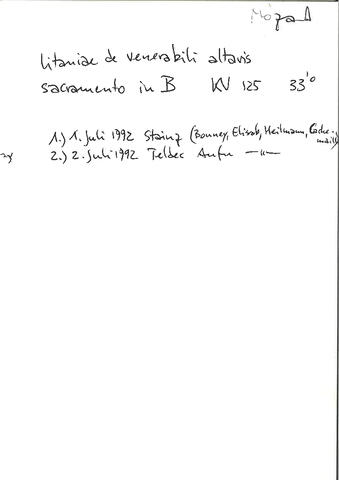 Mozart
litaniae de venerabili altaris
sacramento in B KV 125 33'0
1.) 1. Juli 1992 Stainz (Bonney, Elisab, Heilmann, Cache-
maille)
2.) 2. Juli 1992 Teldec Aufn —"—